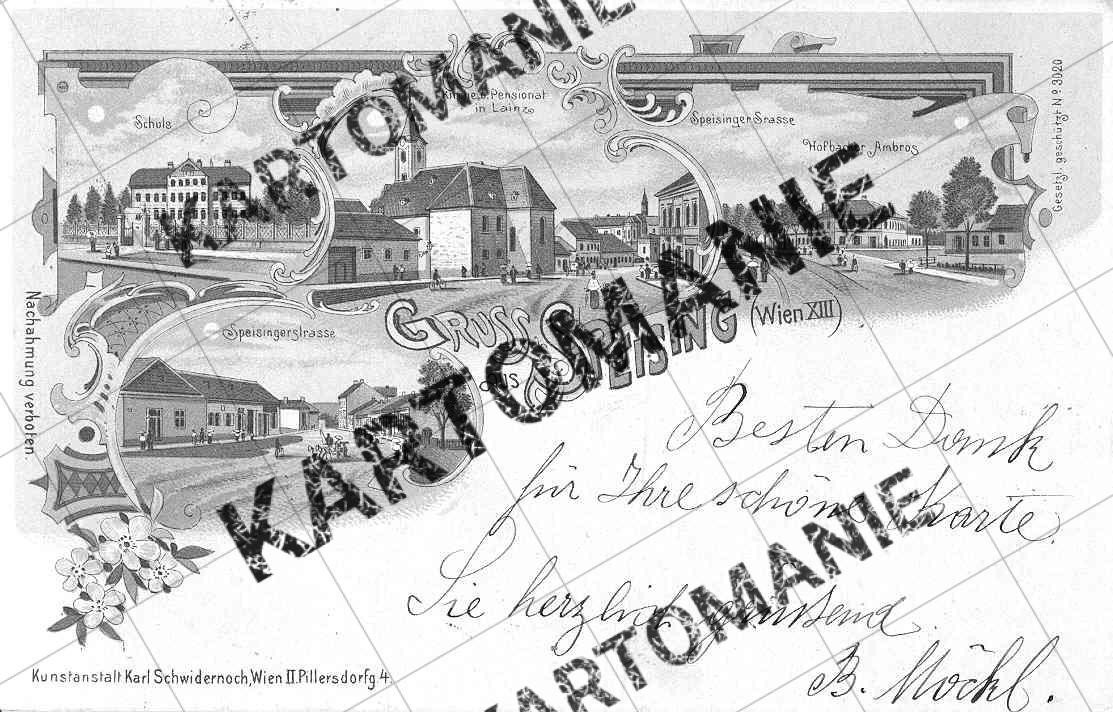 KARTOMANIE
Schule
Kirche u. Pensionat
in Lainz
Speisinger Srasse
Hofbacher Ambros
Gesetzl. geschützt Nº 3020
KARTOMANIE
Nachahmung verboten.
Speisingerstrasse
GRUSS
AUS SPEISING (Wien XIII)
KARTOMANIE
Besten Dank
für Ihre schöne Karte.
Sie herzlich grüßend
B. Möckl.
KARTOMANIE
Kunstanstalt Karl Schwidernoch, Wien II. Pillersdorfg 4.